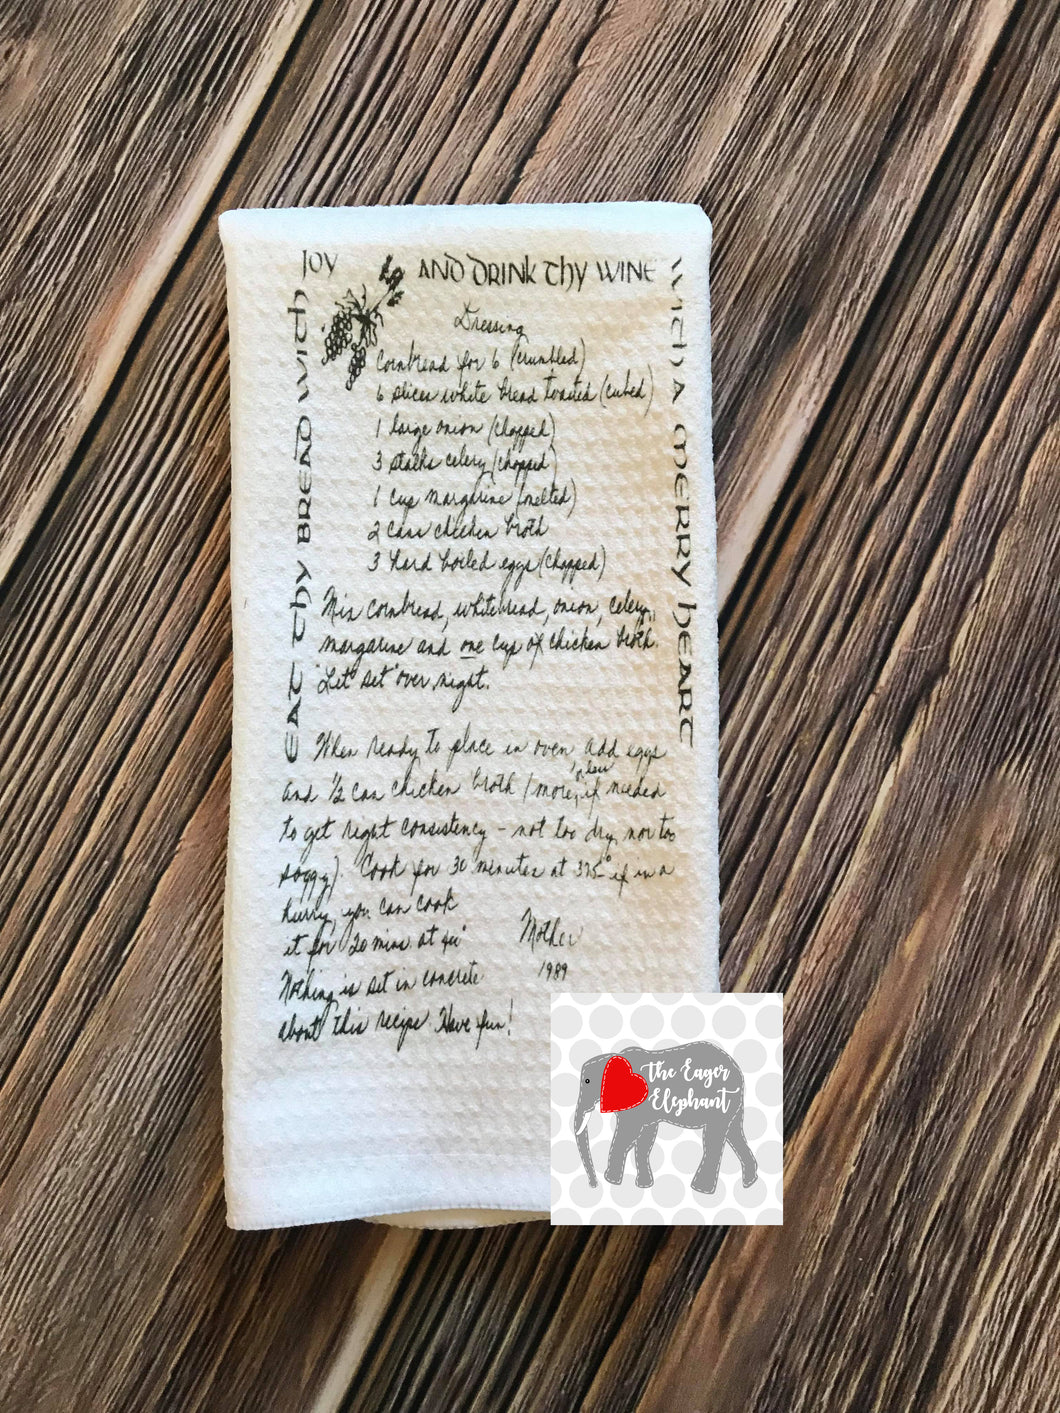 EAT THY BREAD WITH
JOY
AND DRINK THY WINE
WITH A MERRY HEART
Dressing
Cornbread for 6 (crumbled)
6 slices white bread toasted (cubed)
1 large onion (chopped)
3 stalks celery (chopped)
1 cup margarine (melted)
2 cans chicken broth
3 hard boiled eggs (chopped)
Mix cornbread, white bread, onion, celery,
margarine and one cup of chicken broth.
"Let set" over night.
When ready to place in oven add eggs
and 1/2 can chicken broth (more, or less if needed
to get right consistency - not too dry, nor too
soggy). Cook for 30 minutes at 375° if in a
hurry, you can cook
it for 20 mins at 400°
Mother
1989
Nothing is set in concrete
about this recipe. Have fun!
The Eager
Elephant